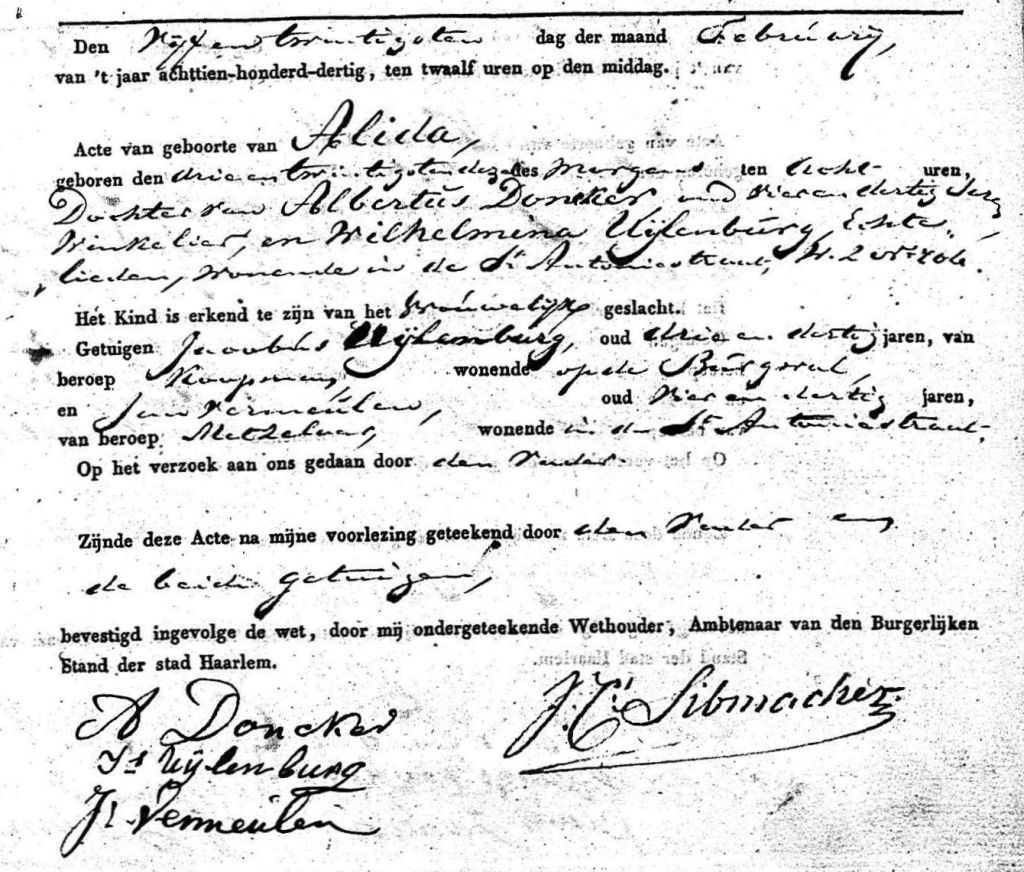 Den Vijfentwintigsten dag der maand February,
van 't jaar achttien-honderd-dertig, ten twaalf uren op den middag.
Acte van geboorte van Alida,
geboren den drie en twintigsten dezer des Morgens ten Acht uren,
Dochter van Albertus Doncker, oud vier en dertig Jaren
Winkelier, en Wilhelmina Uijlenburg, Echte
lieden, wonende in de St. Antoniestraat, W. 2 No. 706.
Het Kind is erkend te zijn van het Vrouwelijk geslacht.
Getuigen Jacobus Uijlenburg, oud drie en dertig jaren, van
beroep Koopman, wonende op de Burgwal,
en Jan Vermeulen, oud vier en dertig jaren,
van beroep Metzelaar, wonende in de St. Antoniestraat.
Op het verzoek aan ons gedaan door den Vader
Zijnde deze Acte na mijne voorlezing geteekend door den Vader en
de beide getuigen,
bevestigd ingevolge de wet, door mij ondergeteekende Wethouder, Ambtenaar van den Burgerlijken
Stand der stad Haarlem.
A Doncker
Js Uijlenburg
Jn Vermeulen
Sibmacher